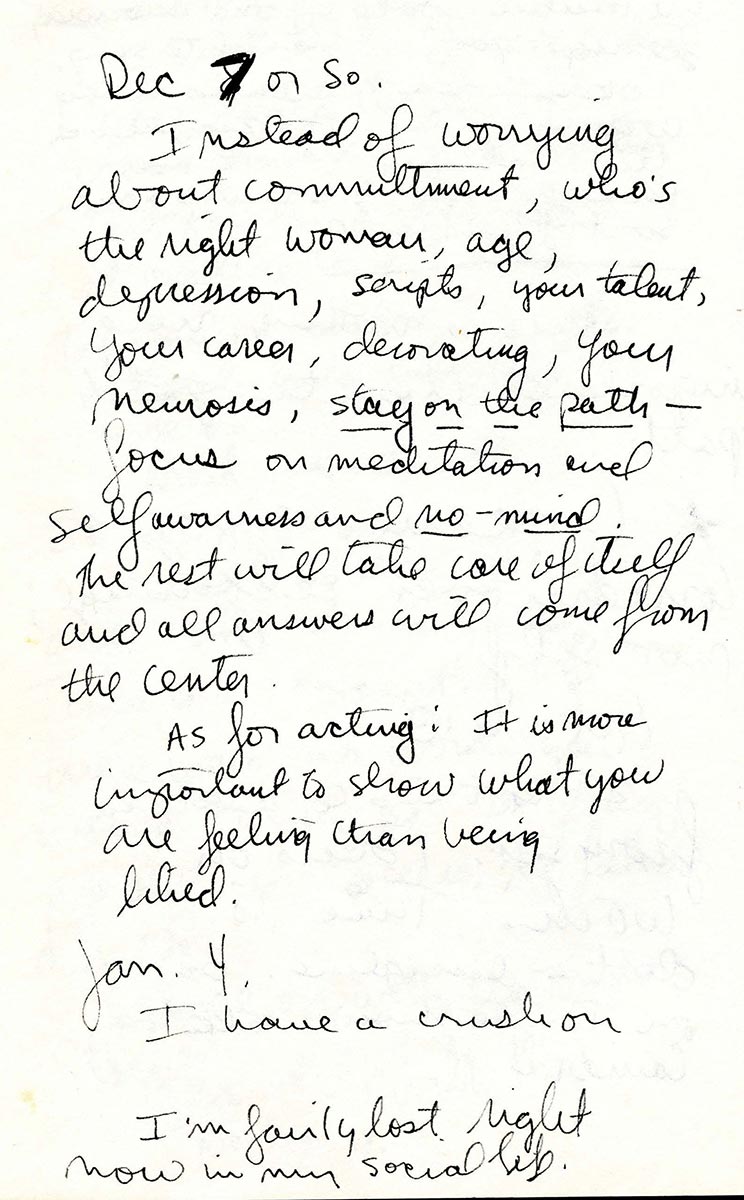 Dec 7 or so.
Instead of worrying
about committment, who's
the right woman, age,
depression, scripts, your talent,
your career, decorating, your
neurosis, stay on the path —
focus on meditation and
self awarness and no-mind.
The rest will take care of itself
and all answers will come from
the center.
As for acting: It is more
important to show what you
are feeling than being
liked.
Jan. 4.
I have a crush on
I'm fairly lost right
now in my social life.